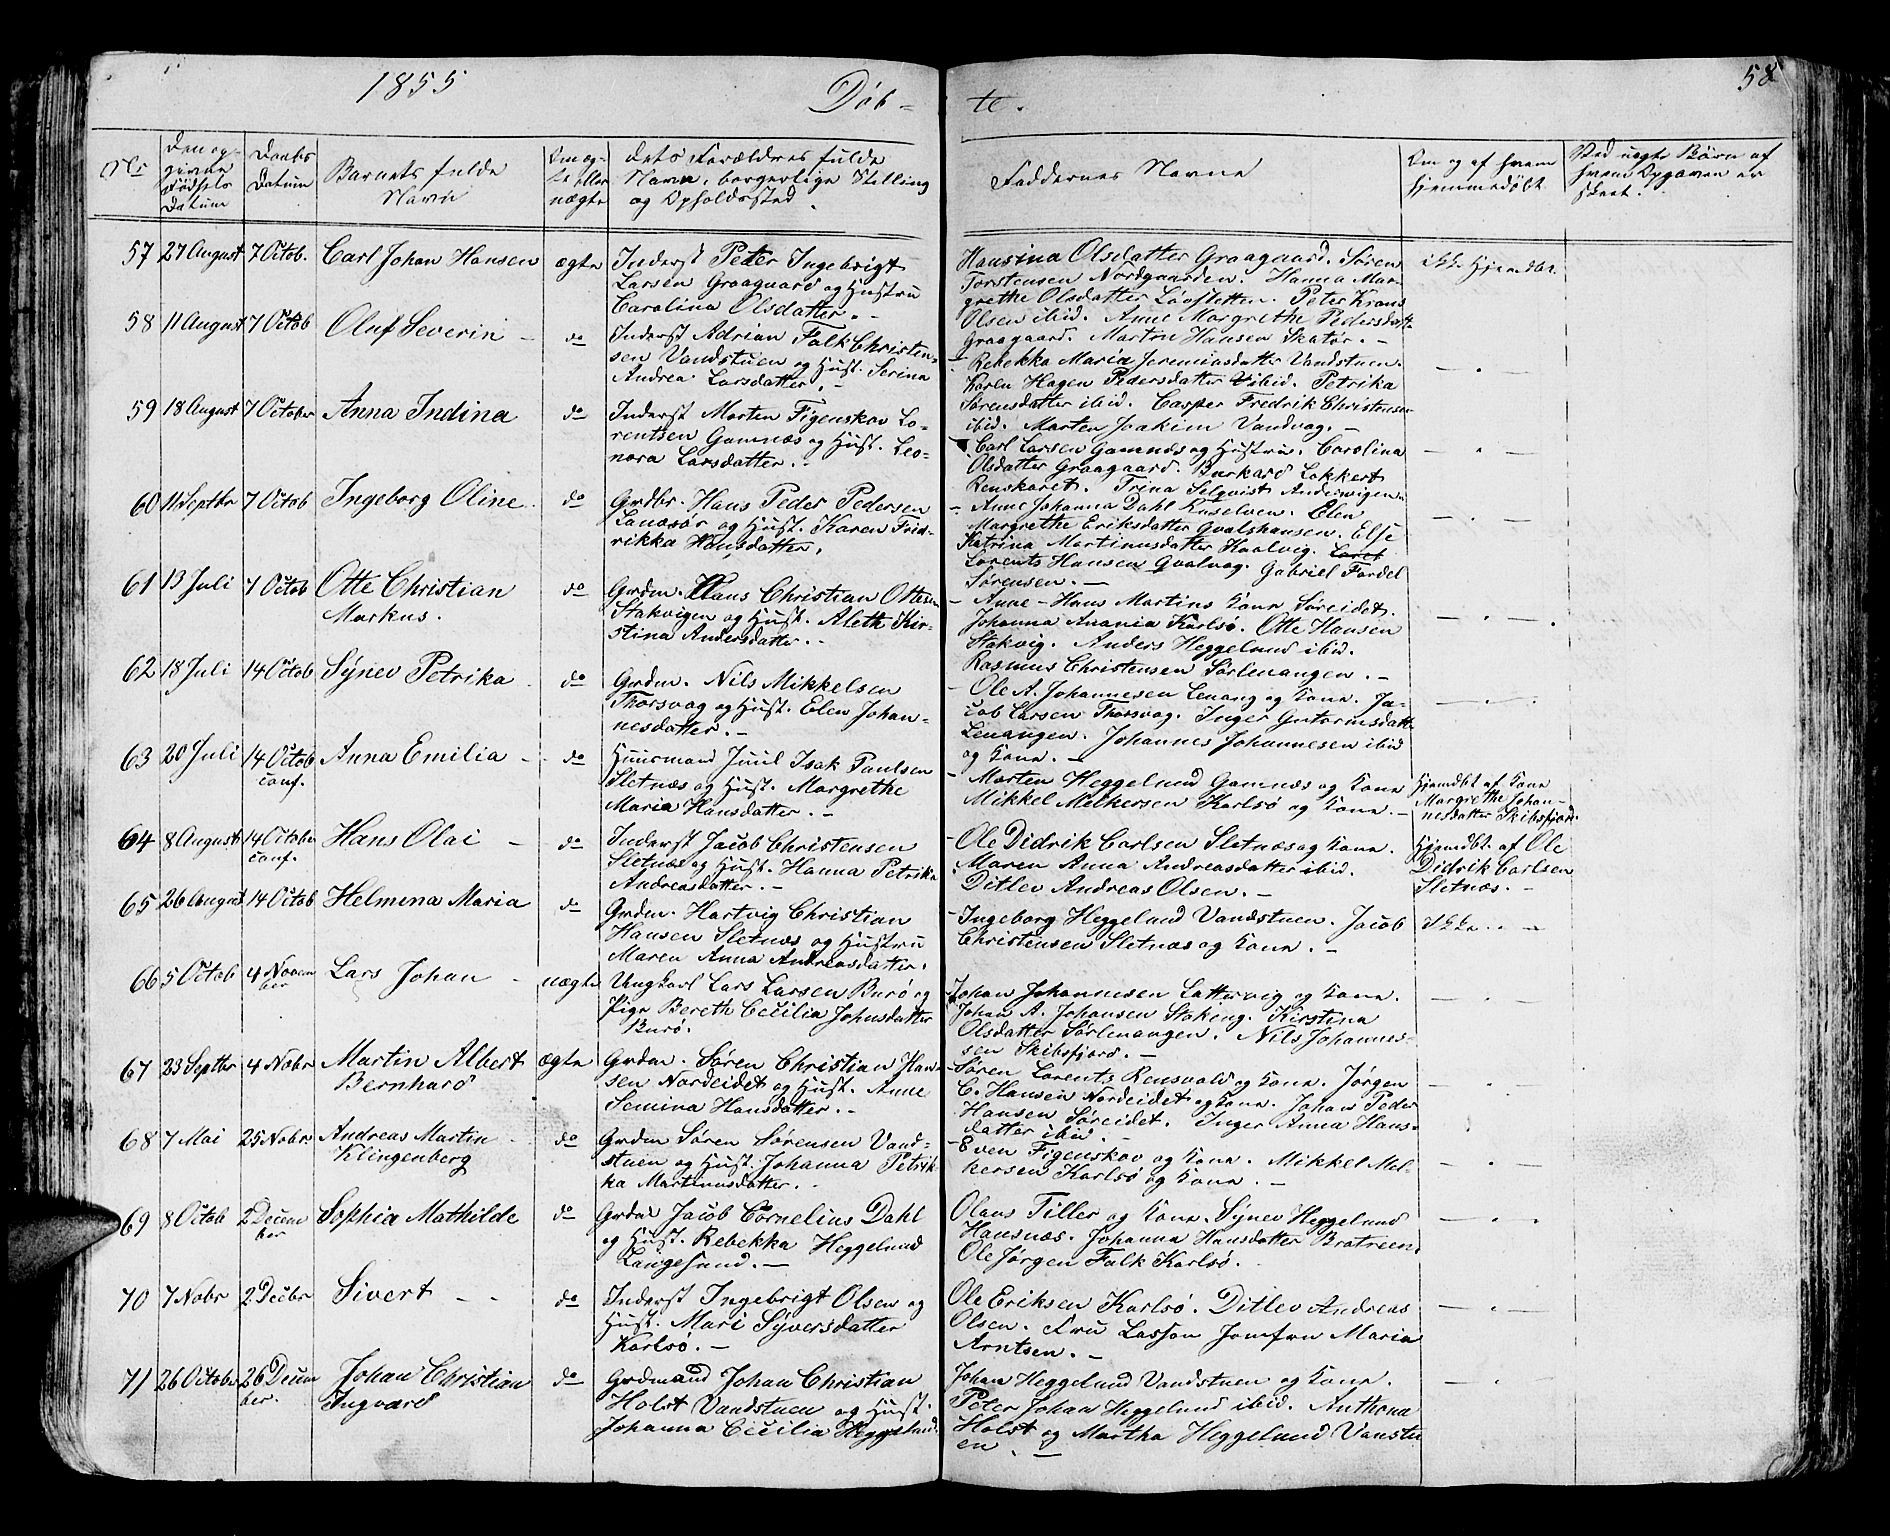 1855
Døb-
te.
58
Nr
Den op-
givne
Fødsels
Datum
Daabs
Datum
Barnets fulde
Navn
Om æg-
te eller
uægte
dets Forældres fulde
Navn, borgerlige Stilling
og Opholdssted.
Faddernes Navne
Om og af hvem
hjemmedøbt
Ved uegte Børn af
hvem Opgaven er
skeet.
57 27 August 7 Octob. Carl Johan Hansen ægte
Inderst Peder Ingebrigt
Larsen Graagaard og Hustru
Carolina Olsdatter. -
Hansina Olsdatter Graagaard. Søren
Torstensen Nordgaarden. Hanna Mar-
grethe Olsdatter Løvstetten. Peter Krans
Olsen ibid. Anne Margrethe Pedersdatt.
Graagaard. Morten Hansen Skatør. -
ikke hjemdbt.
58 11 August 7 Octob Oluf Severin - do
Inderst Adrian Falk Christen-
sen Vandstuen og Hust. Serina
Andrea Larsdatter. -
- Rebekka Maria Jeremiasdatter Vandstuen.
Karen Hagen Pedersdatter ibid. Petrika
Sørensdatter ibid. Casper Fredrik Christensen
ibid. Morten Joakim Vandvag. -
59 18 August 7 October Anna Indina do
Inderst Morten Figenskov Lo-
rentsen Gamnæs og Hust. Leo-
nora Larsdatter. -
Carl Larsen Gamnæs og Hustru. Carolina
Olsdatter Graagaard. Burkard Lokkert
Renskaret. Trina Selqvist
60 11 Septbr 7 Octob Ingeborg Oline. do
Grdbr. Hans Peder Pedersen
og Hust. Karen Frid-
rikka Hansdatter.
- Anne Johanna Dahl Elen
Margrethe Eriksdatter Gvalshausen. Else
Katrina Martinusdatter Kaalvig.
Lorents Hansen Gvalvag. Gabriel Fardel
Sørensen. -
61 13 Juli 7 Octob Otte Christian
Markus. do
Grdm. Klaus Christian Ottesen
Stakvigen og Hust. Aleth Kir-
stina Andersdatter. -
- Anne - Hans Martins Kone Søreidet.
Johanna Anania Karlsø. Otte Hansen
Stakvig. Anders Heggelund ibid.
Rasmus Christensen Sørlenangen. -
62 18 Juli 14 Octob Synev Petrika do
Grdm. Nils Mikkelsen
Thorsvag og Hust. Elen Johan-
nesdatter. -
- Ole A. Johannesen Lenang og Kone. Ja-
cob Larsen Thorsvag. Inger Gutormsdatt.
Lenangen. Johannes Johannesen ibid
og Kone. -
63 20 Juli 14 Octob
conf. Anna Emilia - do
Huusmand Juul Isak Paulsen
Sletnæs og Hust. Margrethe
Maria Hansdatter. -
- Morten Heggelund Gamnæs og Kone
Mikkel Melkersen Karlsø og Kone. -
Hjemdbt af Kone
Margrethe Johan-
nesdatter Skibsfjord.
64 8 August 14 October
conf. Hans Olai - do
Inderst Jacob Christensen
Sletnæs og Hust. Hanna Petrika
Andreasdatter. -
- Ole Didrik Carlsen Sletnæs og Kone.
Maren Anna Andreasdatter ibid.
Ditlev Andreas Olsen. -
Hjemdbt. af Ole
Didrik Carlsen
Sletnæs. -
65 26 August 14 Octob Helmina Maria do
Grdm. Hartvig Christian
Hansen Sletnæs og Hustru
Maren Anna Andreasdatter.
- Ingeborg Heggelund Vandstuen. Jacob
Christensen Sletnæs og Kone. -
Ikke. -
66 5 Octob 4 Novem
ber Lars Johan - uægte
Ungkarl Lars Larsen Burø og
Pige Bereth Cecilia Johnsdatter
Burø.
Johan Johannesen Lattervig og Kone.
Johan A. Johansen Stakeng. Kirstina
Olsdatter Sørlenangen. Nils Johannes-
sen Skibsfjord. -
67 23 Septbr 4 Nobr Martin Albert
Bernhard ægte
Grdm. Søren Christian Han-
sen Nordeidet og Hust. Anne
Semina Hansdatter. -
- Søren Lorents Rensvold og Kone. Jørgen
C. Hansen Nordeidet og Kone. Johan Peder
Hansen Søreidet. Inger Anna Hans-
datter ibid. -
68 7 Mai 25 Nobr Andreas Martin
Klingenberg do
Grdm Søren Sørensen Vand-
stuen og Hust. Johanna Petrik-
ka Martinusdatter. -
- Even Figenskov og Kone. Mikkel Mel-
kersen Karlsø og Kone. -
69 8 Octob 2 Decem
ber Sophia Mathilde do
Grdm Jacob Cornelius Dahl
og Hust. Rebekka Heggelund
Langesund. -
Olaus Tiller og Kone. Synev Heggelund
Hansnæs. Johanna Hansdatter Bratreen.
Ole Jørgen Falk Karlsø.
70 7 Nobr 2 Decbr Sivert - - do
Inderst Ingebrigt Olsen og
Hust. Mari Syversdatter
Karlsø. -
Ole Eriksen Karlsø. Ditlev Andreas
Olsen. Fru Lasson Jomfru Maria
Arntsen. -
71 26 Octobr 26 Decem
ber. Johan Christian
Ingvard do
Grdmand Johan Christian
Holst Vandstuen og Hust.
Johanna Cecilia Heggelund.
Johan Heggelund Vandstuen og Kone.
Peter Johan Heggelund ibid. Anthona
Holst og Martha Heggelund Vanstu
en. -